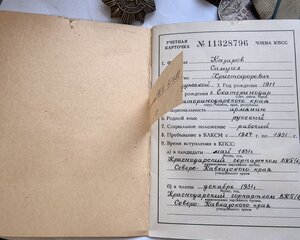 УЧЕТНАЯ КАРТОЧКА № 11328796 ЧЛЕНА КПСС
Казаров
Самуил
Христофорович
мужской 3. Год рождения 1911
рождения г. Екатеринодар
Екатеринодарского края
армянин
6. Родной язык русский
7. Социальное положение рабочий
8. Пребывание в ВЛКСМ с 1927 г. по 1931
9. Время вступления в КПСС:
а) в кандидаты май 1931 г.
Краснодарский горпартком ВКП(б)
Северо-Кавказского края
б) в члены декабрь 1931 г.
Краснодарский горпартком ВКП(б)
Северо-Кавказского края